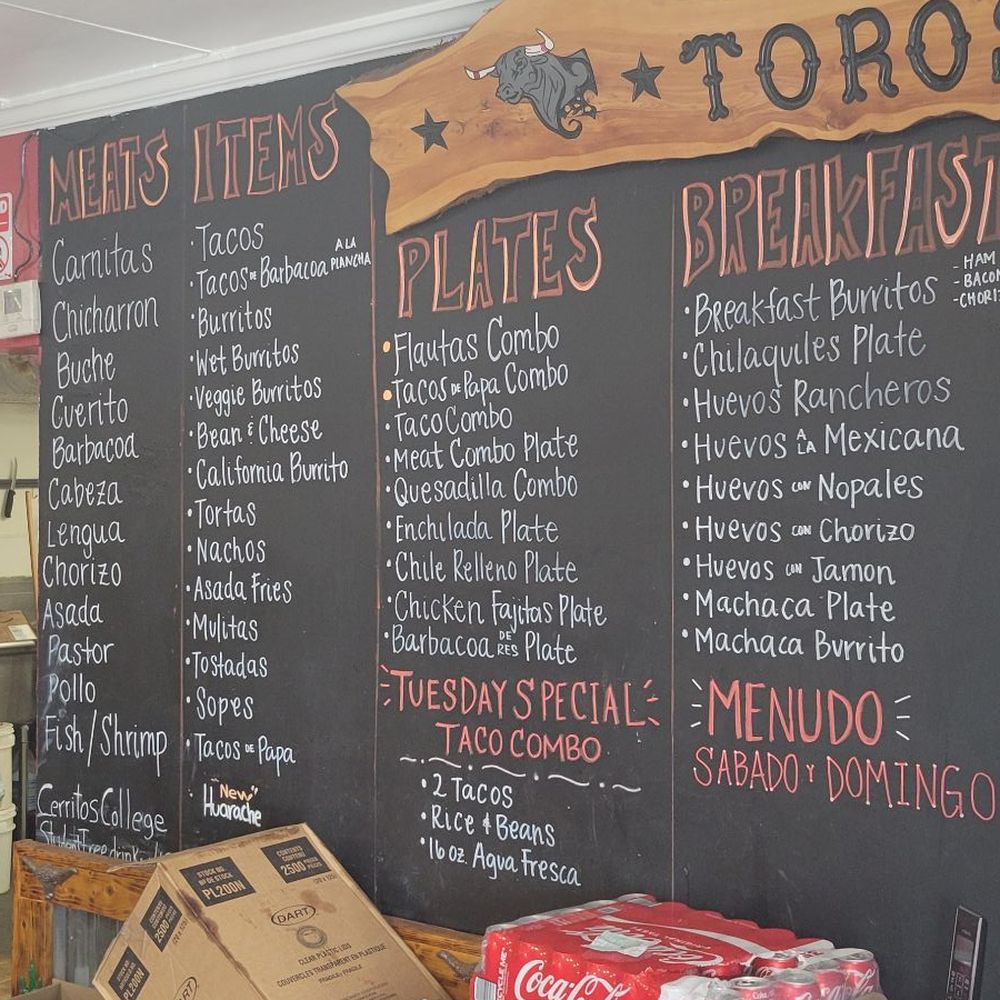 TOROS
MEATS
Carnitas
Chicharron
Buche
Cuerito
Barbacoa
Cabeza
Lengua
Chorizo
Asada
Pastor
Pollo
Fish/Shrimp
Cerritos College
Student Free drink
ITEMS
• Tacos
• Tacos DE Barbacoa A LA PLANCHA
• Burritos
• Wet Burritos
• Veggie Burritos
• Bean & Cheese
• California Burrito
• Tortas
• Nachos
• Asada Fries
• Mulitas
• Tostadas
• Sopes
• Tacos DE Papa
New
Huarache
PLATES
• Flautas Combo
• Tacos DE Papa Combo
• Taco Combo
• Meat Combo Plate
• Quesadilla Combo
• Enchilada Plate
• Chile Relleno Plate
• Chicken Fajitas Plate
• Barbacoa DE RES Plate
TUESDAY SPECIAL
TACO COMBO
• 2 Tacos
• Rice & Beans
• 16 oz. Agua Fresca
BREAKFAST
• Breakfast Burritos
- HAM
- BACON
- CHORI
• Chilaquiles Plate
• Huevos Rancheros
• Huevos A LA Mexicana
• Huevos CON Nopales
• Huevos CON Chorizo
• Huevos CON Jamon
• Machaca Plate
• Machaca Burrito
MENUDO
SABADO Y DOMINGO
STOCK NO
PL200N
CONTENTS
CONTENU
2500 PIECES
DART
CLEAR PLASTIC LIDS
COUVERCLES TRANSPARENT EN PLASTIQUE
2500
PL200N
DART
Coca-Cola